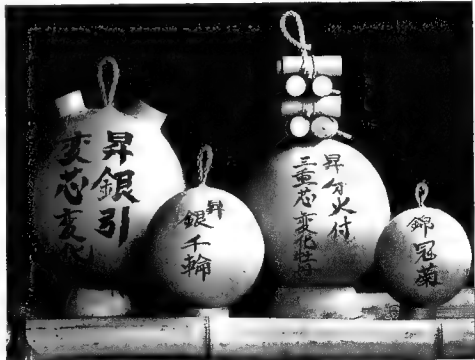 昇銀引
変芯変化
昇
銀千輪
昇分火付
三重芯変化牡丹
錦冠菊